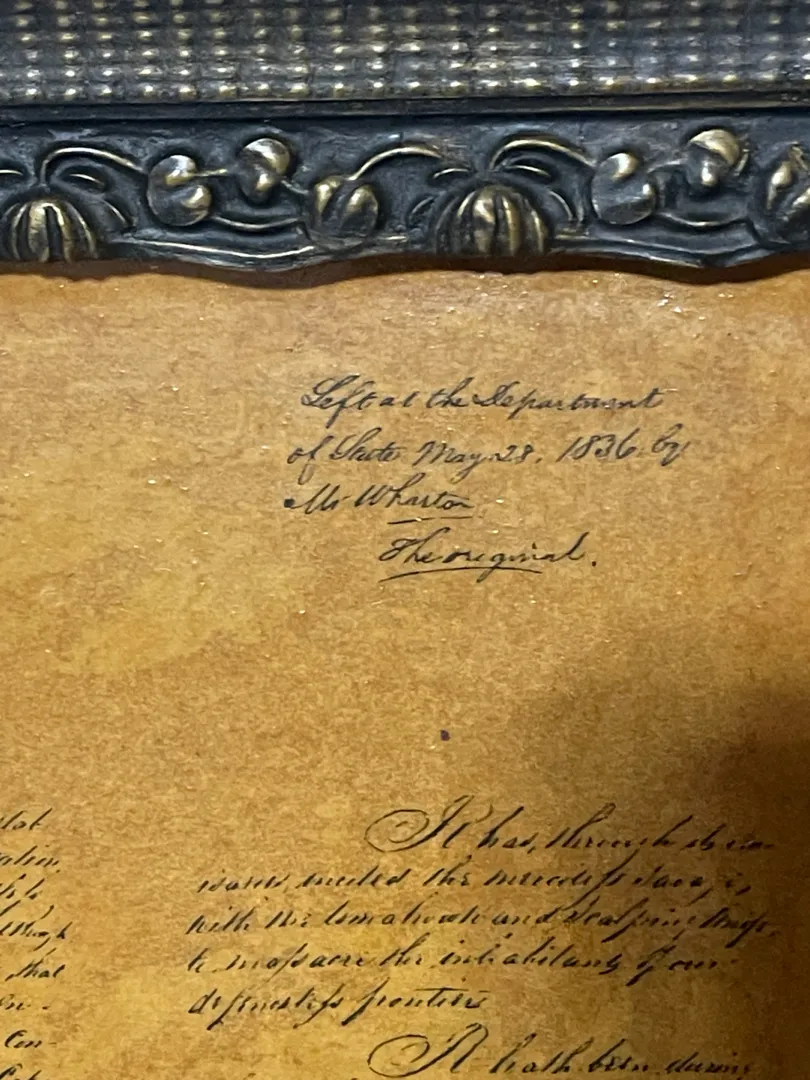 Left at the Department
of State May 28, 1836 by
Mr Wharton
The original.
that
It has, through its em-
issaries, incited the merciless savage,
with the tomahawk and scalping knife,
to massacre the inhabitants of our
defenceless frontiers
Con-
It hath been, during